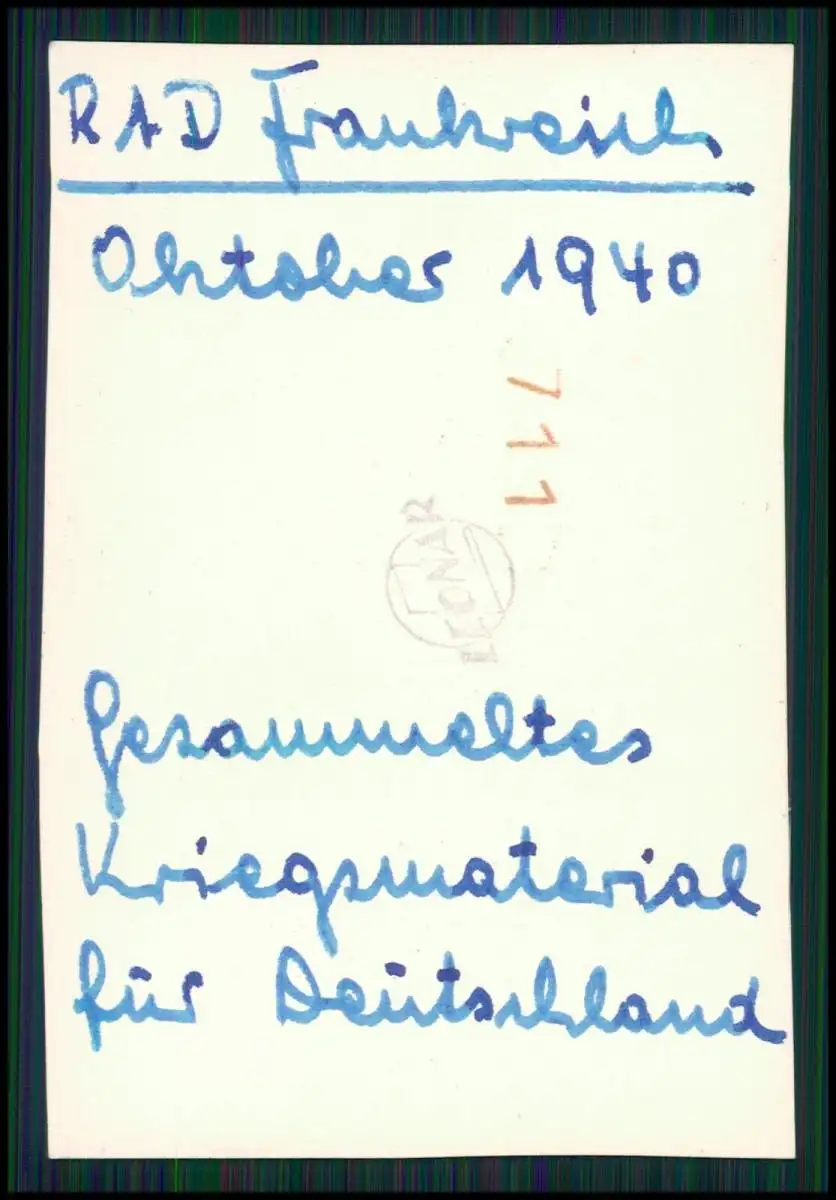 RAD Frankreich
Oktober 1940
711
LEONAR
Gesammeltes
Kriegsmaterial
für Deutschland